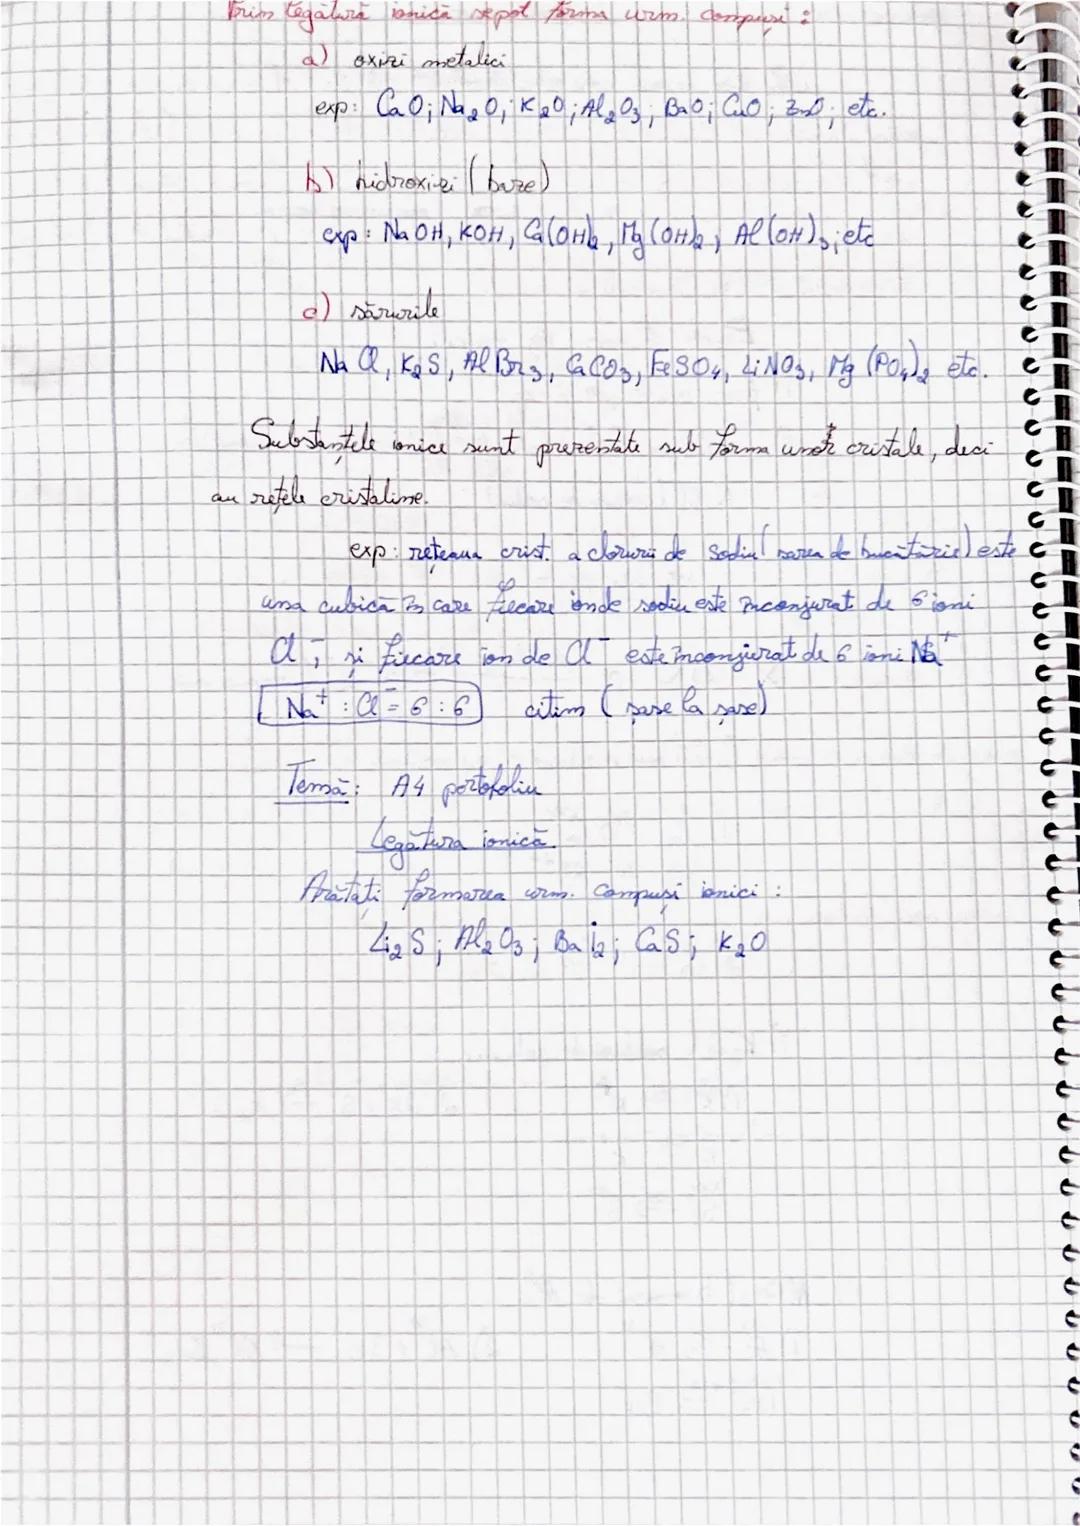 Prin legătură ionică se pot forma urm. compuși :
a) oxizi metalici
exp: CaO; Na₂O; K₂O; Al₂O₃; BaO; CuO; ZnO; etc.
b) hidroxizi (baze)
exp: NaOH, KOH, Ca(OH)₂, Mg(OH)₂, Al(OH)₃; etc
c) sărurile
NaCl, K₂S, AlBr₃, CaCO₃, FeSO₄, LiNO₃, Mg(PO₄)₂ etc.
Substanțele ionice sunt prezentate sub forma unor cristale, deci
au rețele cristaline.
exp: rețeaua crist. a clorurii de sodiu (sarea de bucătărie) este
una cubică în care fiecare ion de sodiu este înconjurat de 6 ioni
Cl⁻, și fiecare ion de Cl⁻ este înconjurat de 6 ioni Na⁺
Na⁺ : Cl⁻ = 6 : 6 citim (șase la șase)
Temă: A4 portofoliu
Legătura ionică
Arătați formarea urm. compuși ionici :
Li₂S; Al₂O₃; BaI₂; CaS; K₂O